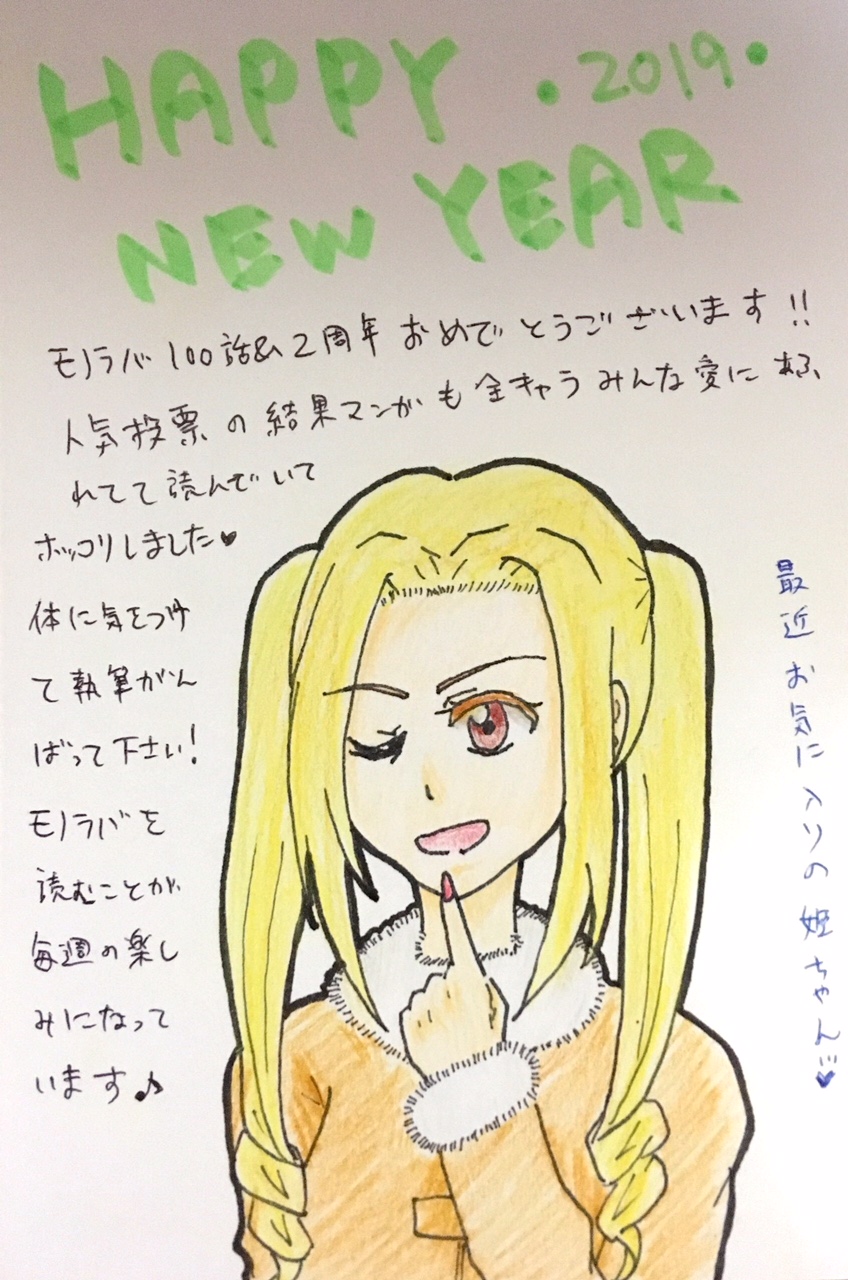 HAPPY ・2019・
NEW YEAR
モノラバ100話&2周年おめでとうございます!!
人気投票の結果マンガも全キャラみんな愛にあふ
れてて読んでいて
ホッコリしました♥
体に気をつけ
て執筆がん
ばって下さい!
モノラバを
読むことが
毎週の楽し
みになって
います♪
最近お気に入りの姫ちゃん!!♥